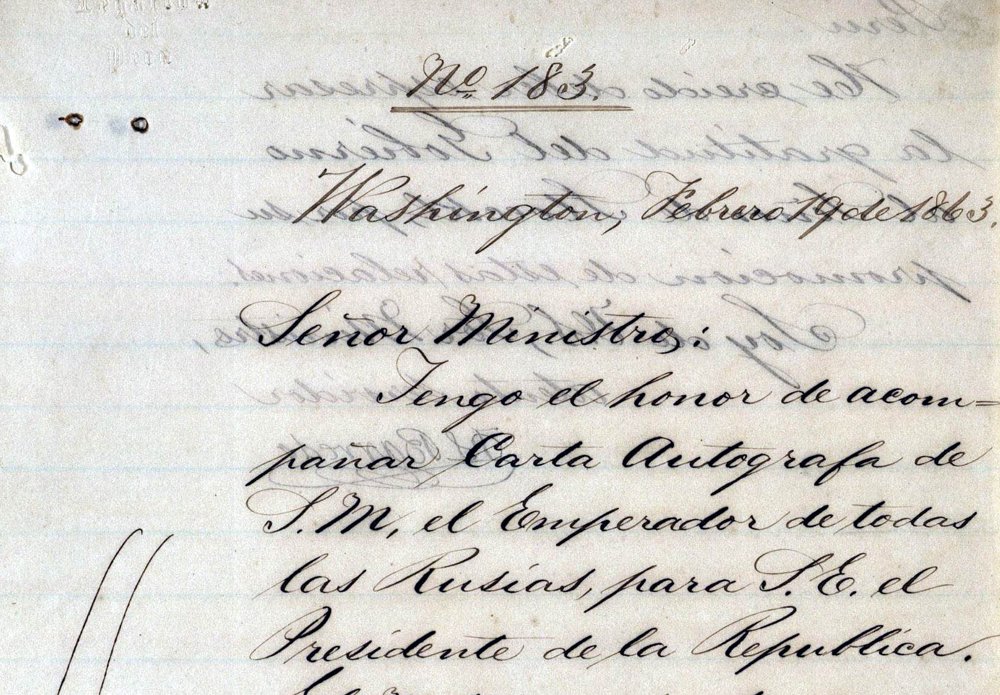 No. 183.
Washington, Febrero 19 de 1863.
Señor Ministro:
Tengo el honor de acom=
pañar Carta Autografa de
S.M, el Emperador de todas
las Rusias, para S.E. el
Presidente de la Republica.